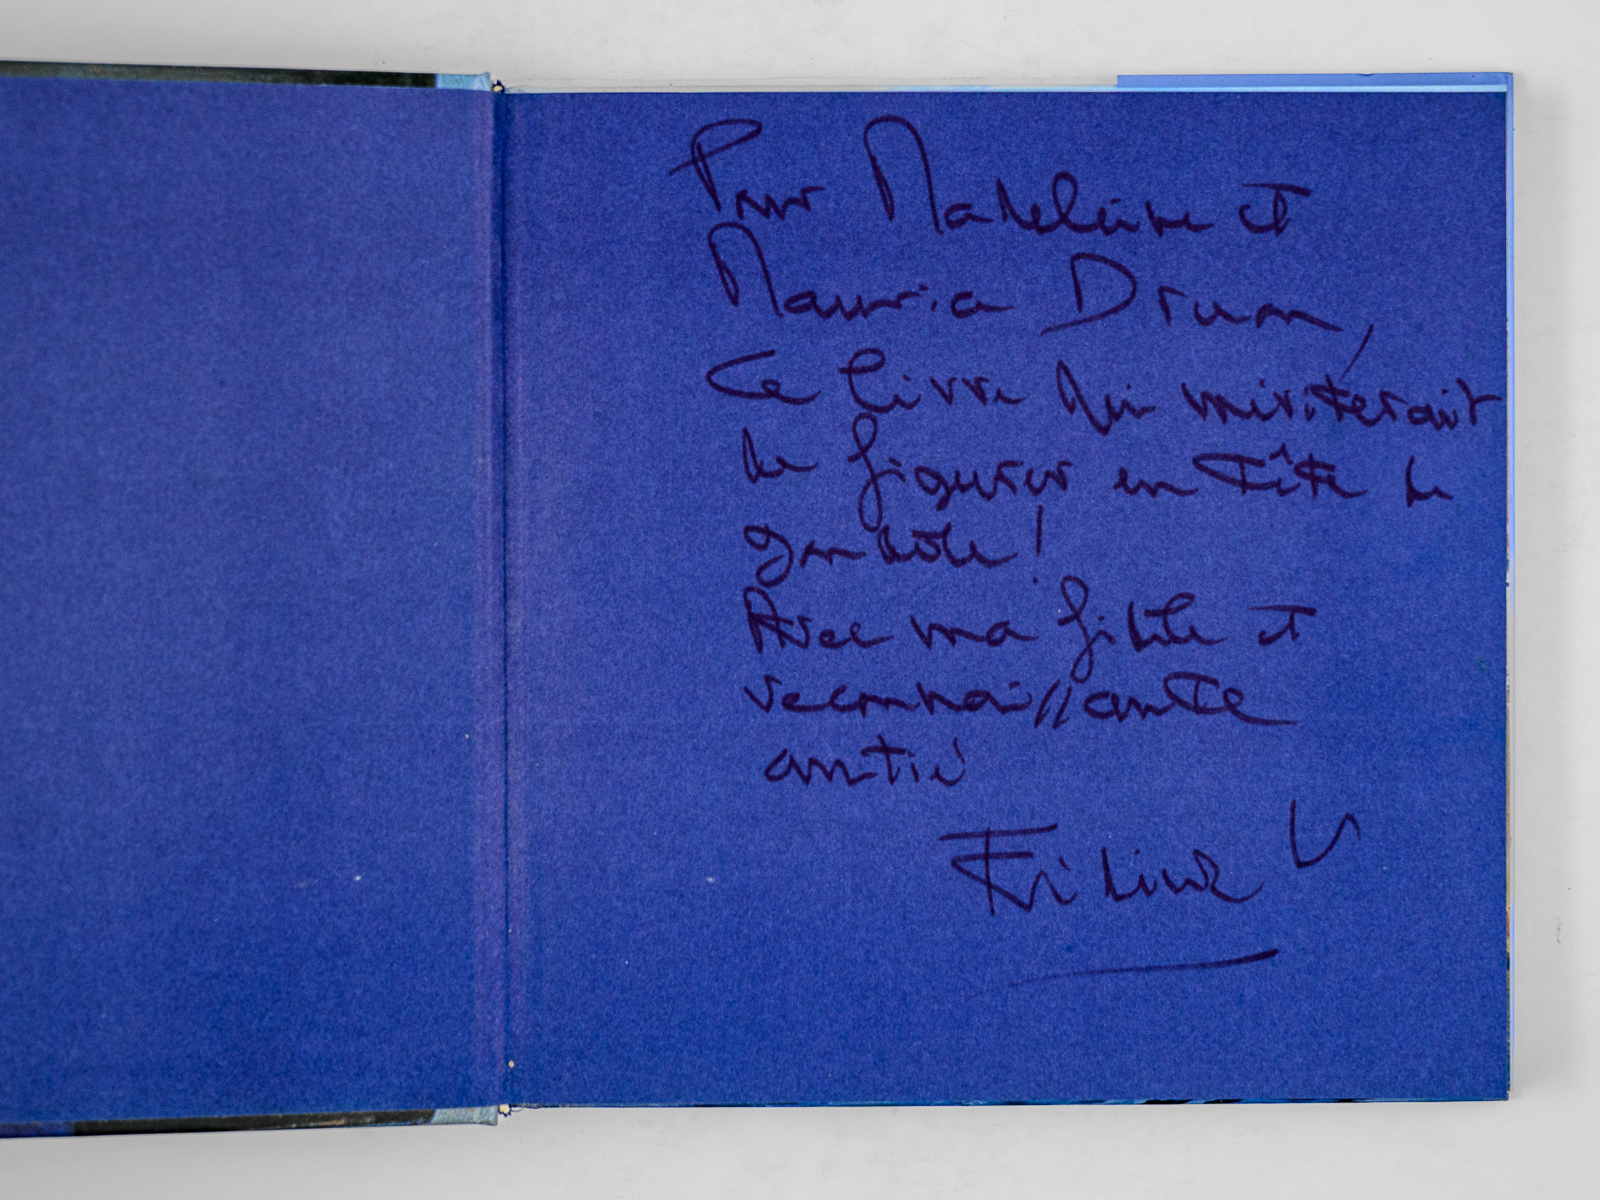 Pour Madeleine et
Maurice Druon,
Ce livre qui mériterait
de figurer en tête de
gondole!
Avec ma fidèle et
reconnaissante
amitié